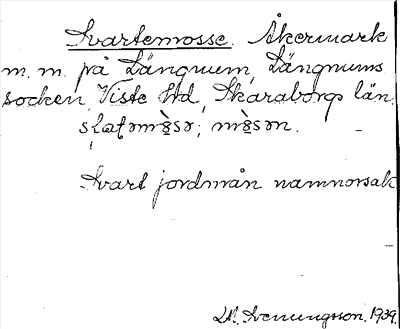 Svartemosse. Åkermark
m. m. på Längnum, Längnums
socken, Viste hd, Skaraborgs län.
Svart jordmån namnorsak
Svenungsson. 1939.